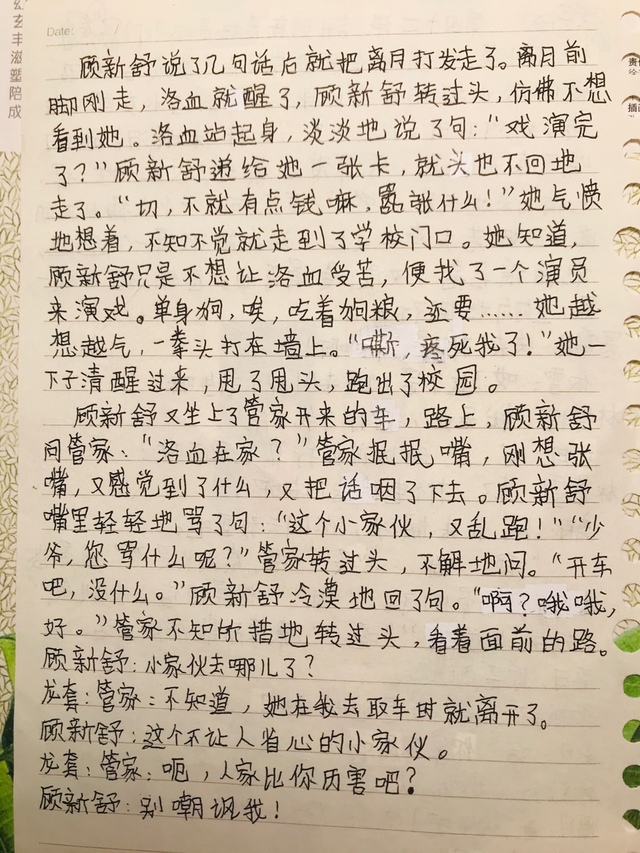 Date: /
顾新舒说了几句话后就把离月打发走了。离月前
脚刚走，洛血就醒了，顾新舒转过头，仿佛不想
看到她。洛血站起身，淡淡地说了句：“戏演完
了？”顾新舒递给她一张卡，就头也不回地
走了。“切，不就有点钱嘛，嚣张什么！”她气愤
地想着，不知不觉就走到了学校门口。她知道，
顾新舒只是不想让洛血受苦，便找了一个演员
来演戏。单身狗，唉，吃着狗粮，还要……她越
想越气，一拳头打在墙上。“嘶，疼死我了！”她一
下子清醒过来，甩了甩头，跑出了校园。
顾新舒又坐上了管家开来的车，路上，顾新舒
问管家：“洛血在家？”管家抿抿嘴，刚想张
嘴，又感觉到了什么，又把话咽了下去。顾新舒
嘴里轻轻地骂了句：“这个小家伙，又乱跑！”“少
爷，您骂什么呢？”管家转过头，不解地问。“开车
吧，没什么。”顾新舒冷漠地回了句。“啊？哦哦，
好。”管家不知所措地转过头，看着面前的路。
顾新舒：小家伙去哪儿了？
龙套：管家：不知道，她在我去取车时就离开了。
顾新舒：这个不让人省心的小家伙。
龙套：管家：呃，人家比你厉害吧？
顾新舒：别嘲讽我！
幻玄丰滋塑陪成
责
插